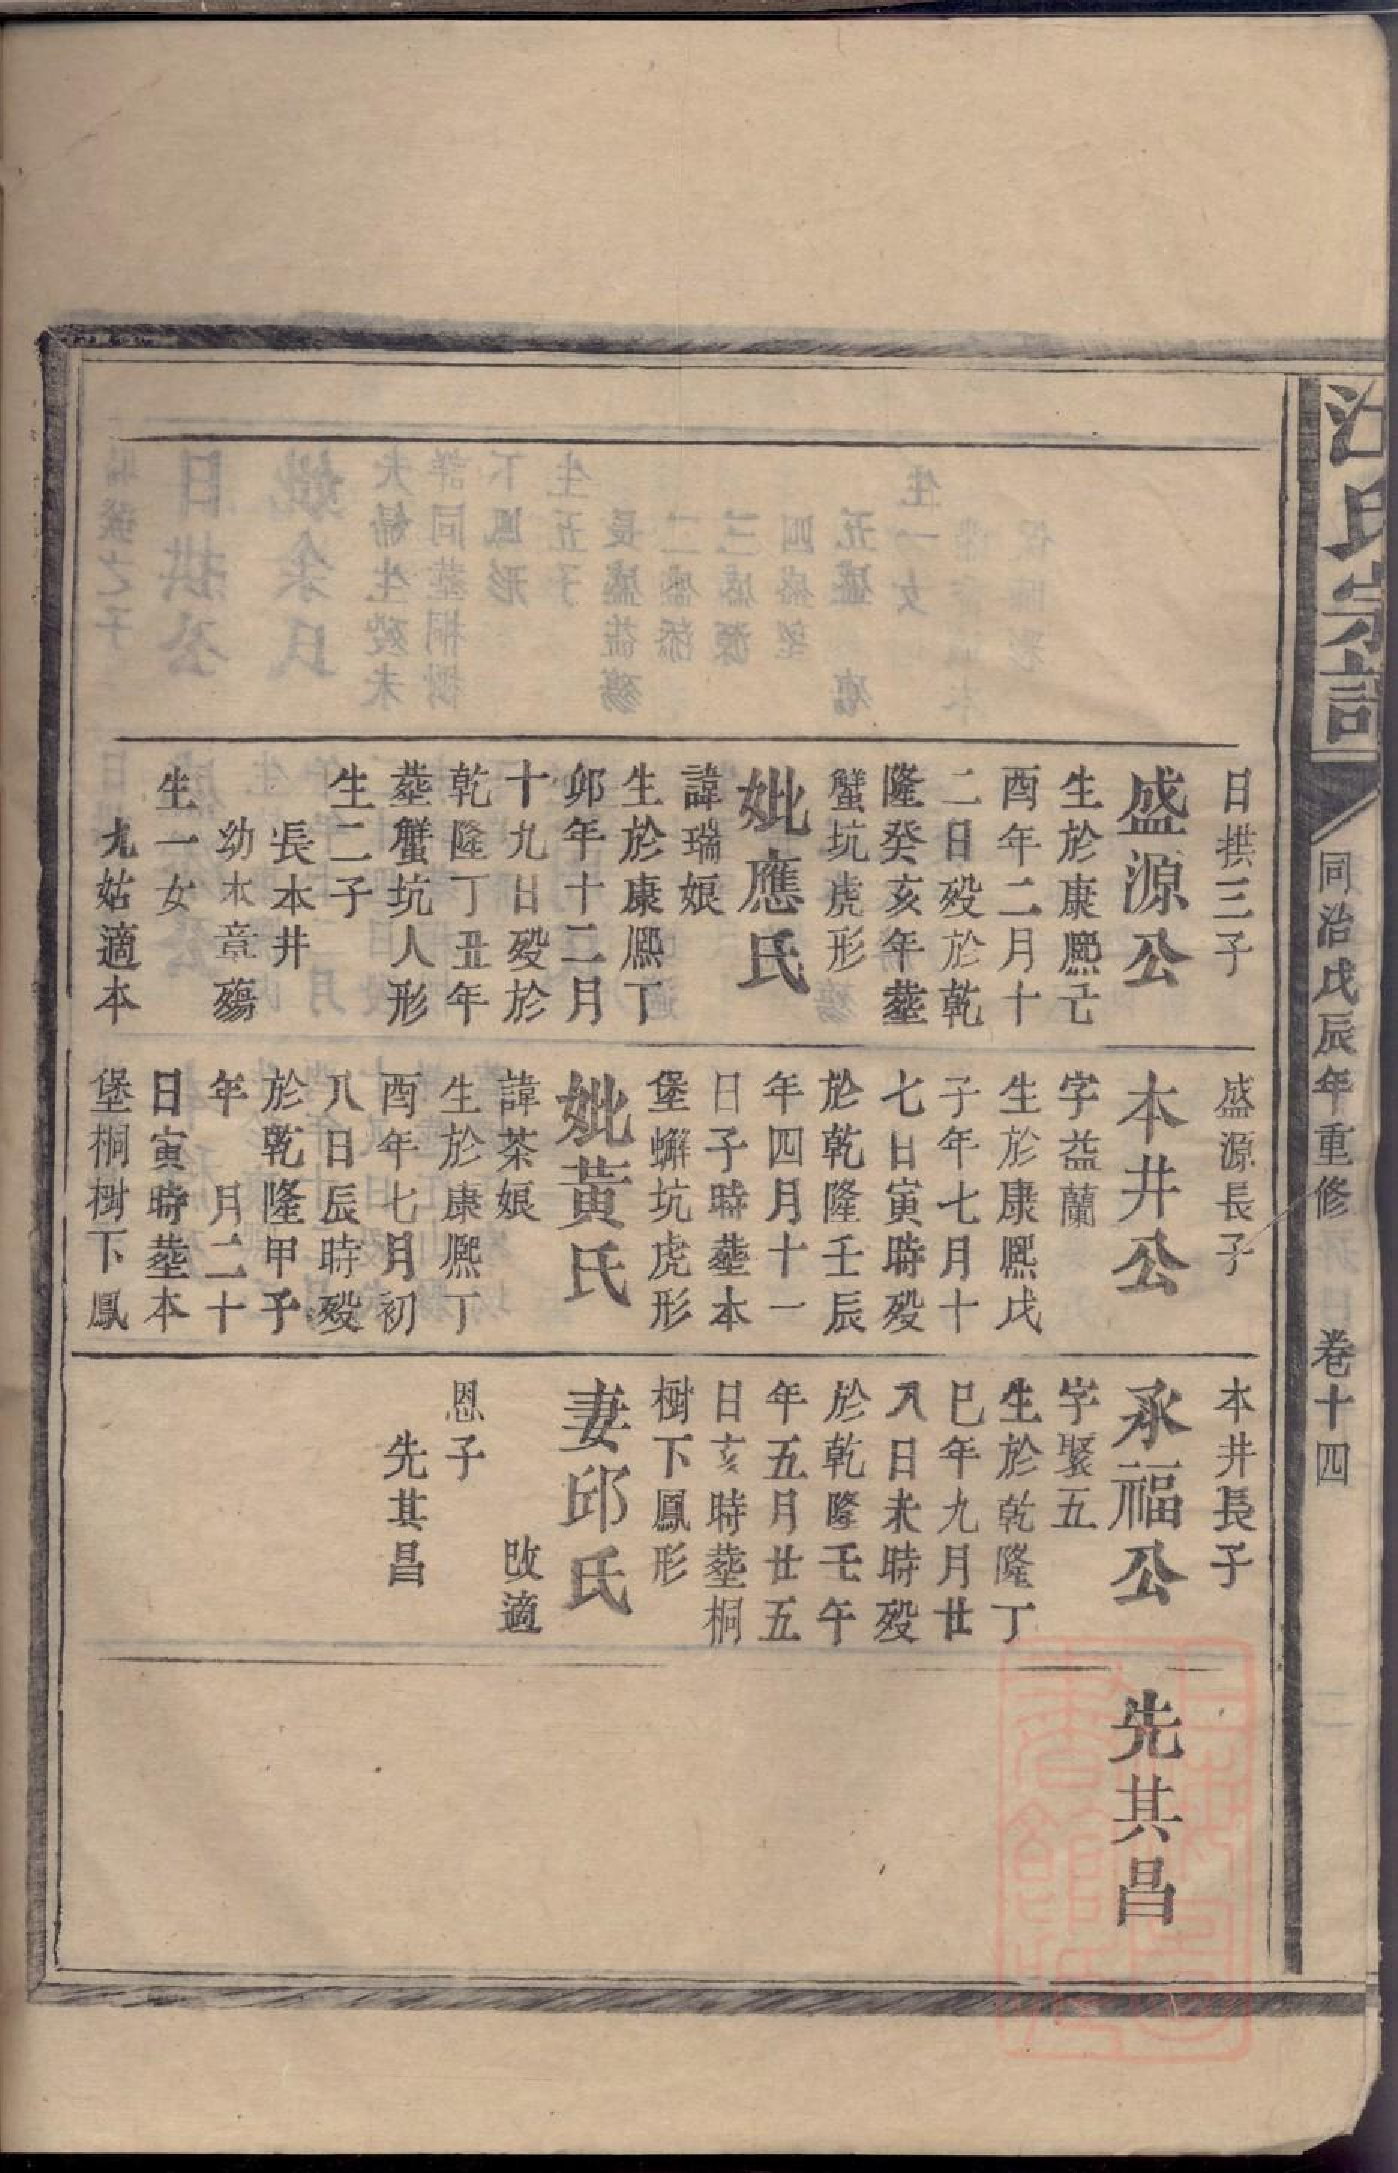 江氏宗譜
同治戊辰年重修
卷十四
日拱三子
盛源公
生於康熙己
酉年二月十
二日歿於乾
隆癸亥年塟
蟹坑虎形
妣應氏
諱瑞娘
生於康熙丁
卯年十二月
十九日歿於
乾隆丁丑年
塟蟹坑人形
生二子
長本井
幼本章殤
生一女
九姑適本
盛源長子
本井公
字益蘭
生於康熙戊
子年七月十
七日寅時歿
於乾隆壬辰
年四月十一
日子時塟本
堡蠏坑虎形
妣黃氏
諱茶娘
生於康熙丁
酉年七月初
八日辰時歿
於乾隆甲子
年　月二十
日寅時塟本
堡桐樹下鳳
本井長子
承福公
字聚五
生於乾隆丁
巳年九月廿
八日未時歿
於乾隆壬午
年五月廿五
日亥時塟桐
樹下鳳形
妻邱氏
改適
恩子
先其昌
先其昌